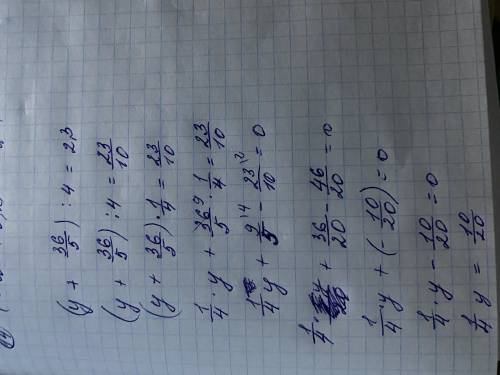 (y + 36/5) : 4 = 2,3
(y + 36/5) : 4 = 23/10
(y + 36/5) · 1/4 = 23/10
1/4 · y + 36⁹/5 · 1/4 = 23/10
1/4 y + 9/5 \4 - 23/10 \2 = 0
1/4 · y + 36/20 - 46/20 = 0
1/4 · y + (- 10/20) = 0
1/4 · y - 10/20 = 0
1/4 y = 10/20